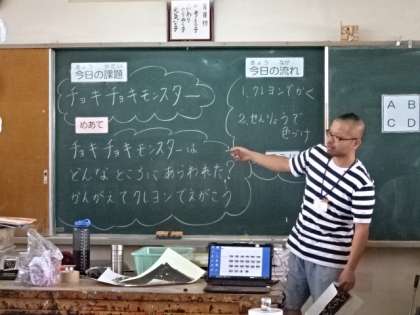 きょう かだい
今日の課題
チョキチョキモンスター
めあて
チョキチョキモンスターは
どんなところにあらわれた?
かんがえてクレヨンでえがこう
きょう なが
今日の流れ
1. クレヨンでかく
2. せんりょうで
色づけ
A B
C D